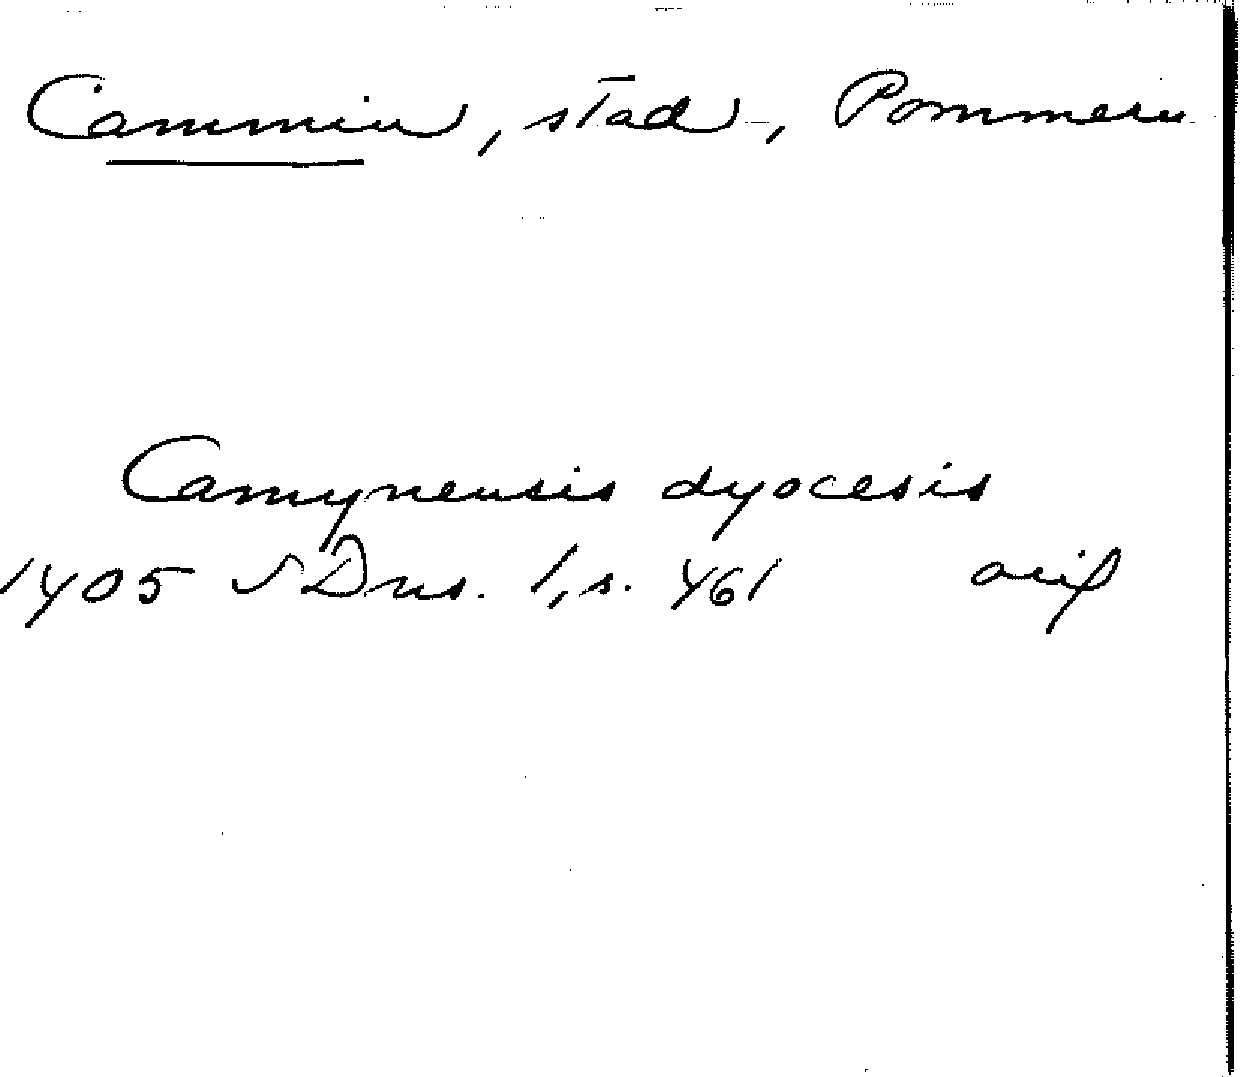 Cammin, stad, Pommern
Camynensis dyocesis
1405 SDns. 1, s. 461 avip